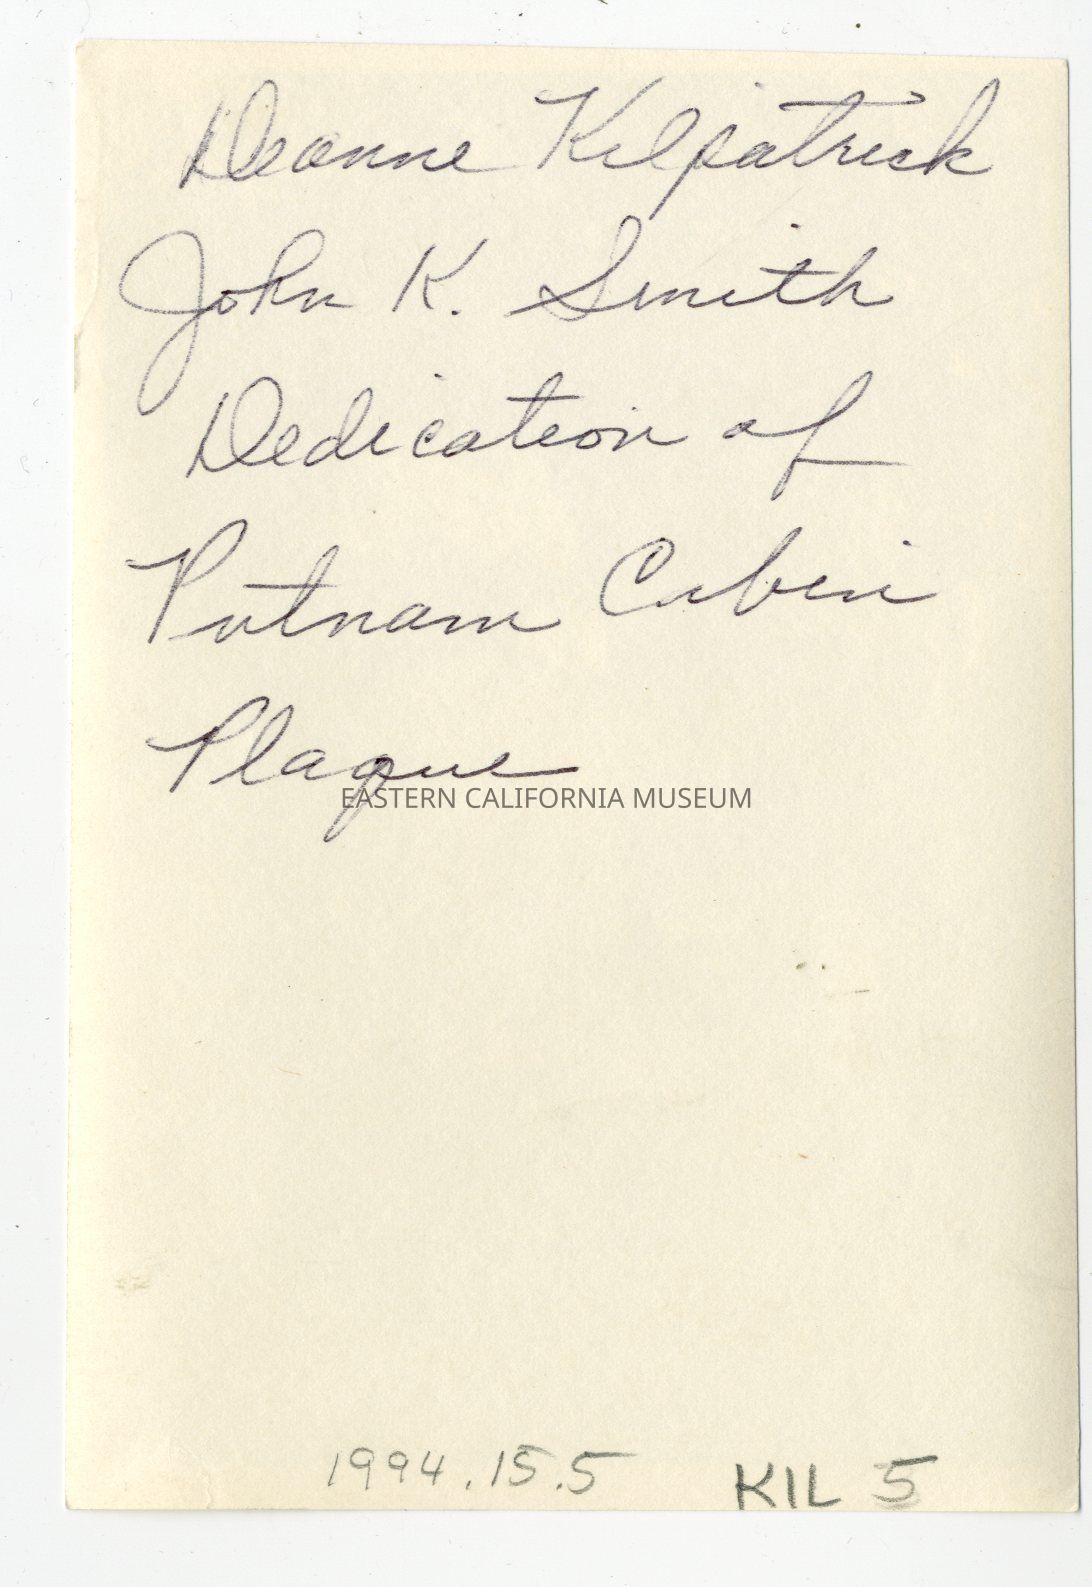 Deanne Kilpatrick
John K. Smith
Dedication of
Putnam Cabin
Plaque
EASTERN CALIFORNIA MUSEUM
1994.15.5 KIL 5